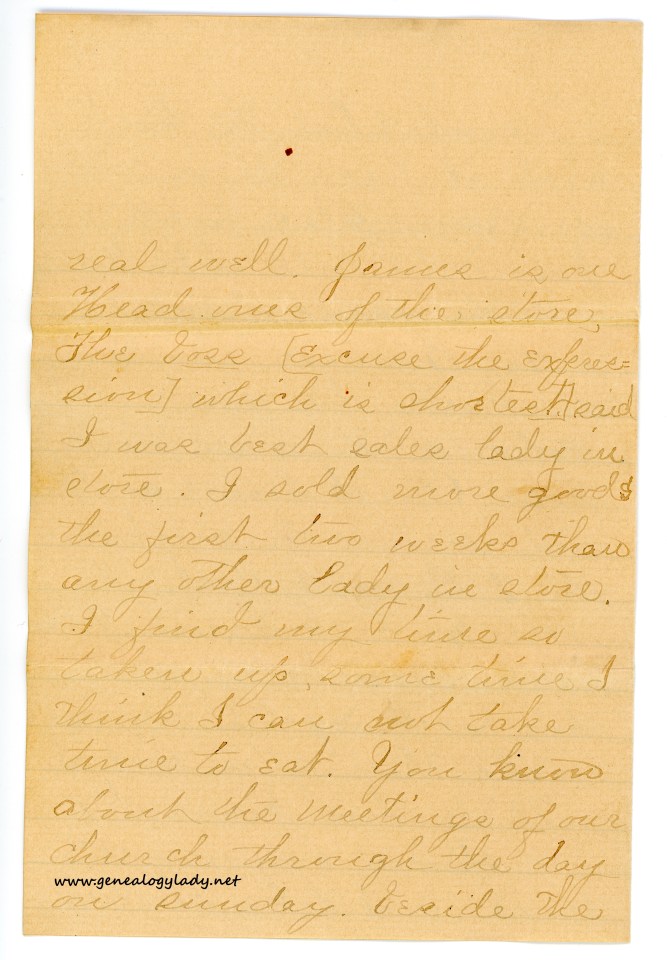 real well. James is one
Head ones of the store,
The Boss [Excuse the expres=
sion] which is shortest] said
I was best sales lady in
store. I sold more goods
the first two weeks than
any other lady in store.
I find my time so
taken up, some time I
think I can not take
time to eat. You know
about the meetings of our
church through the day
www.genealogylady.net
on sunday. Beside the